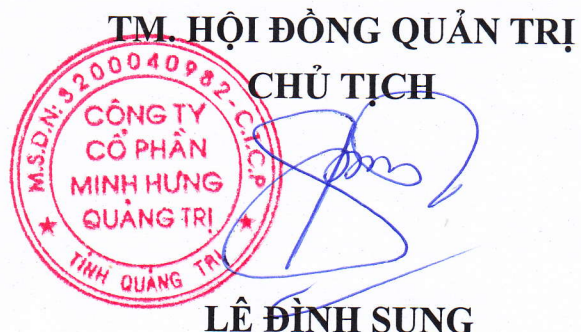 TM. HỘI ĐỒNG QUẢN TRỊ
CHỦ TỊCH
M.S.D.N: 3200040982 - C.T.C.P
CÔNG TY
CỔ PHẦN
MINH HƯNG
QUẢNG TRỊ
TỈNH QUẢNG TRỊ
LÊ ĐÌNH SUNG